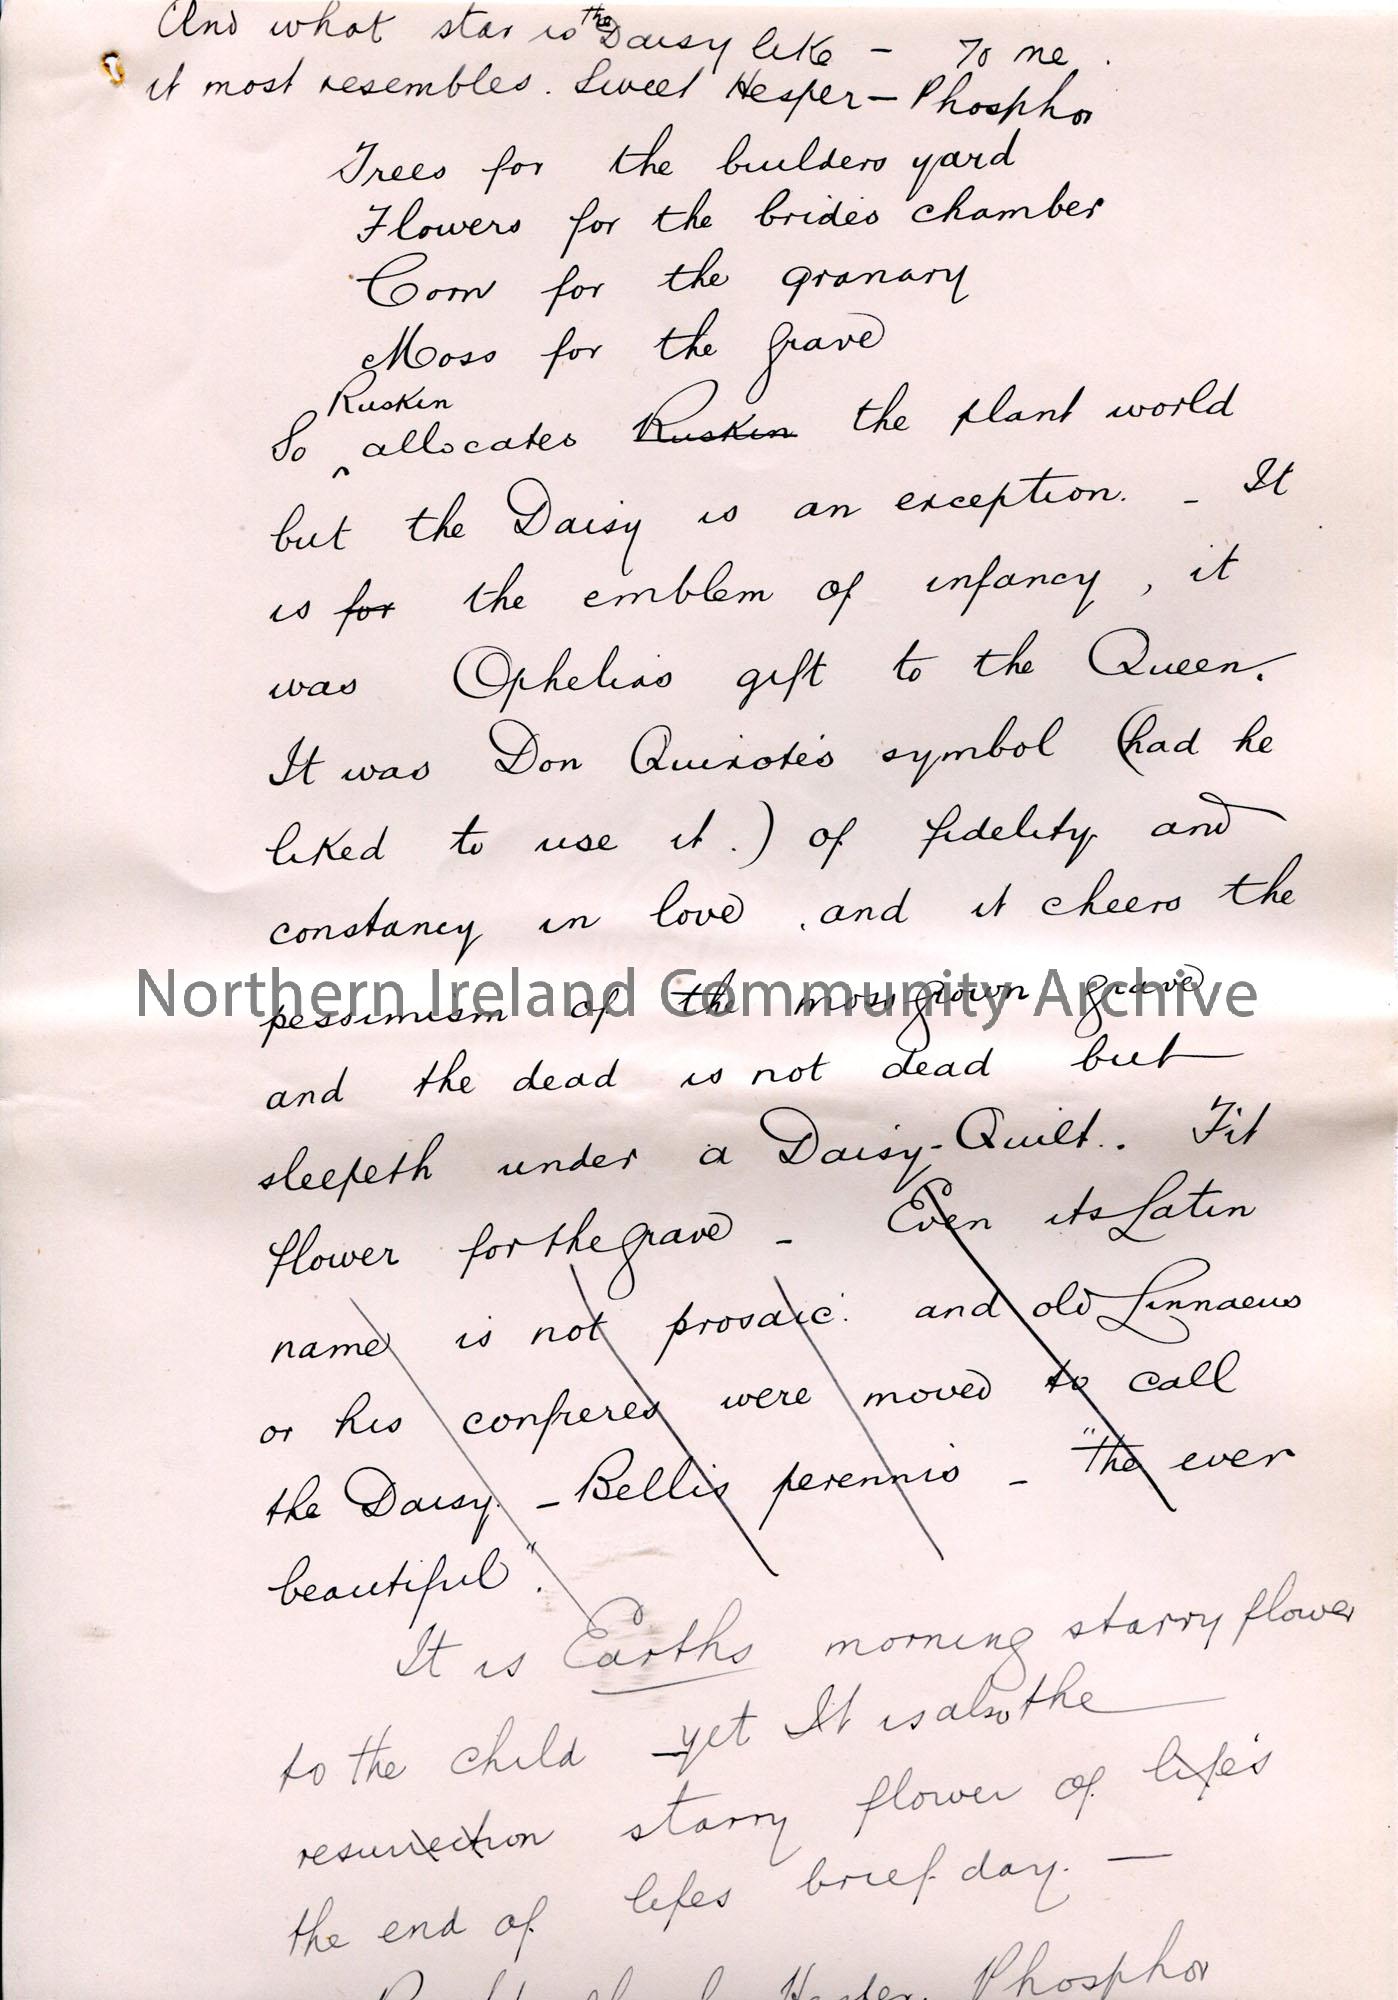 And what star is the Daisy like - To me
it most resembles. Sweet Hesper - Phosphor
Trees for the builders yard
Flowers for the brides chamber
Corn for the granary
Moss for the grave
Ruskin
So ^ allocates Ruskin the plant world
but the Daisy is an exception. - It
is for the emblem of infancy, it
was Ophelias gift to the Queen.
It was Don Quixote's symbol (had he
liked to use it.) of fidelity and
constancy in love, and it cheers the
Northern Ireland Community Archive
pessimism of the moss grown grave
and the dead is not dead but
sleepeth under a Daisy-Quilt.. Fit
flower for the grave - Even its Latin
name is not prosaic. and old Linnaeus
or his confreres were moved to call
the Daisy. - Bellis perennis - "the ever
beautiful".
It is Earths morning starry flower
to the child - yet It is also the
resurrection starry flower of life's
the end of lifes brief day. -
Hesper. Phosphor